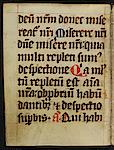 deū nr̄m donec mise
reat᷑ nr̄i Miserere nr̄i
dn̄e misere nr̄i quia
multi repleti sum᷒
despectione Quia ml
tū repleta est aīa
nr̄a obprbriū habū
dantib᷒ ⁊ despectio
supbis A Qui habi